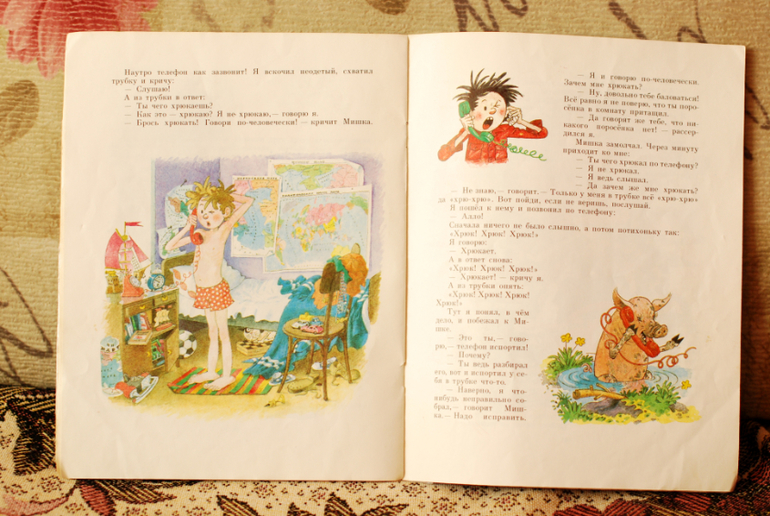 Наутро телефон как зазвонит! Я вскочил неодетый, схватил
трубку и кричу:
— Слушаю!
А из трубки в ответ:
— Ты чего хрюкаешь?
— Как это — хрюкаю? Я не хрюкаю,— говорю я.
— Брось хрюкать! Говори по-человечески! — кричит Мишка.
— Я и говорю по-человечески.
Зачем мне хрюкать?
— Ну, довольно тебе баловаться!
Всё равно я не поверю, что ты поро-
сёнка в комнату притащил.
— Да говорят же тебе, что ни-
какого поросёнка нет! — рассер-
дился я.
Мишка замолчал. Через минуту
приходит ко мне:
— Ты чего хрюкал по телефону?
— Я не хрюкал.
— Я ведь слышал.
— Да зачем же мне хрюкать?
— Не знаю,— говорит.— Только у меня в трубке всё «хрю-хрю»
да «хрю-хрю». Вот пойди, если не веришь, послушай.
Я пошёл к нему и позвонил по телефону:
— Алло!
Сначала ничего не было слышно, а потом потихоньку так:
«Хрюк! Хрюк! Хрюк!»
Я говорю:
— Хрюкает.
А в ответ снова:
«Хрюк! Хрюк! Хрюк!»
— Хрюкает! — кричу я.
А из трубки опять:
«Хрюк! Хрюк! Хрюк!
Хрюк!»
Тут я понял, в чём
дело, и побежал к Ми-
шке.
— Это ты,— гово-
рю,— телефон испортил!
— Почему?
— Ты ведь разбирал
его, вот и испортил у се-
бя в трубке что-то.
— Наверно, я что-
нибудь неправильно со-
брал,— говорит Миш-
ка.— Надо исправить.